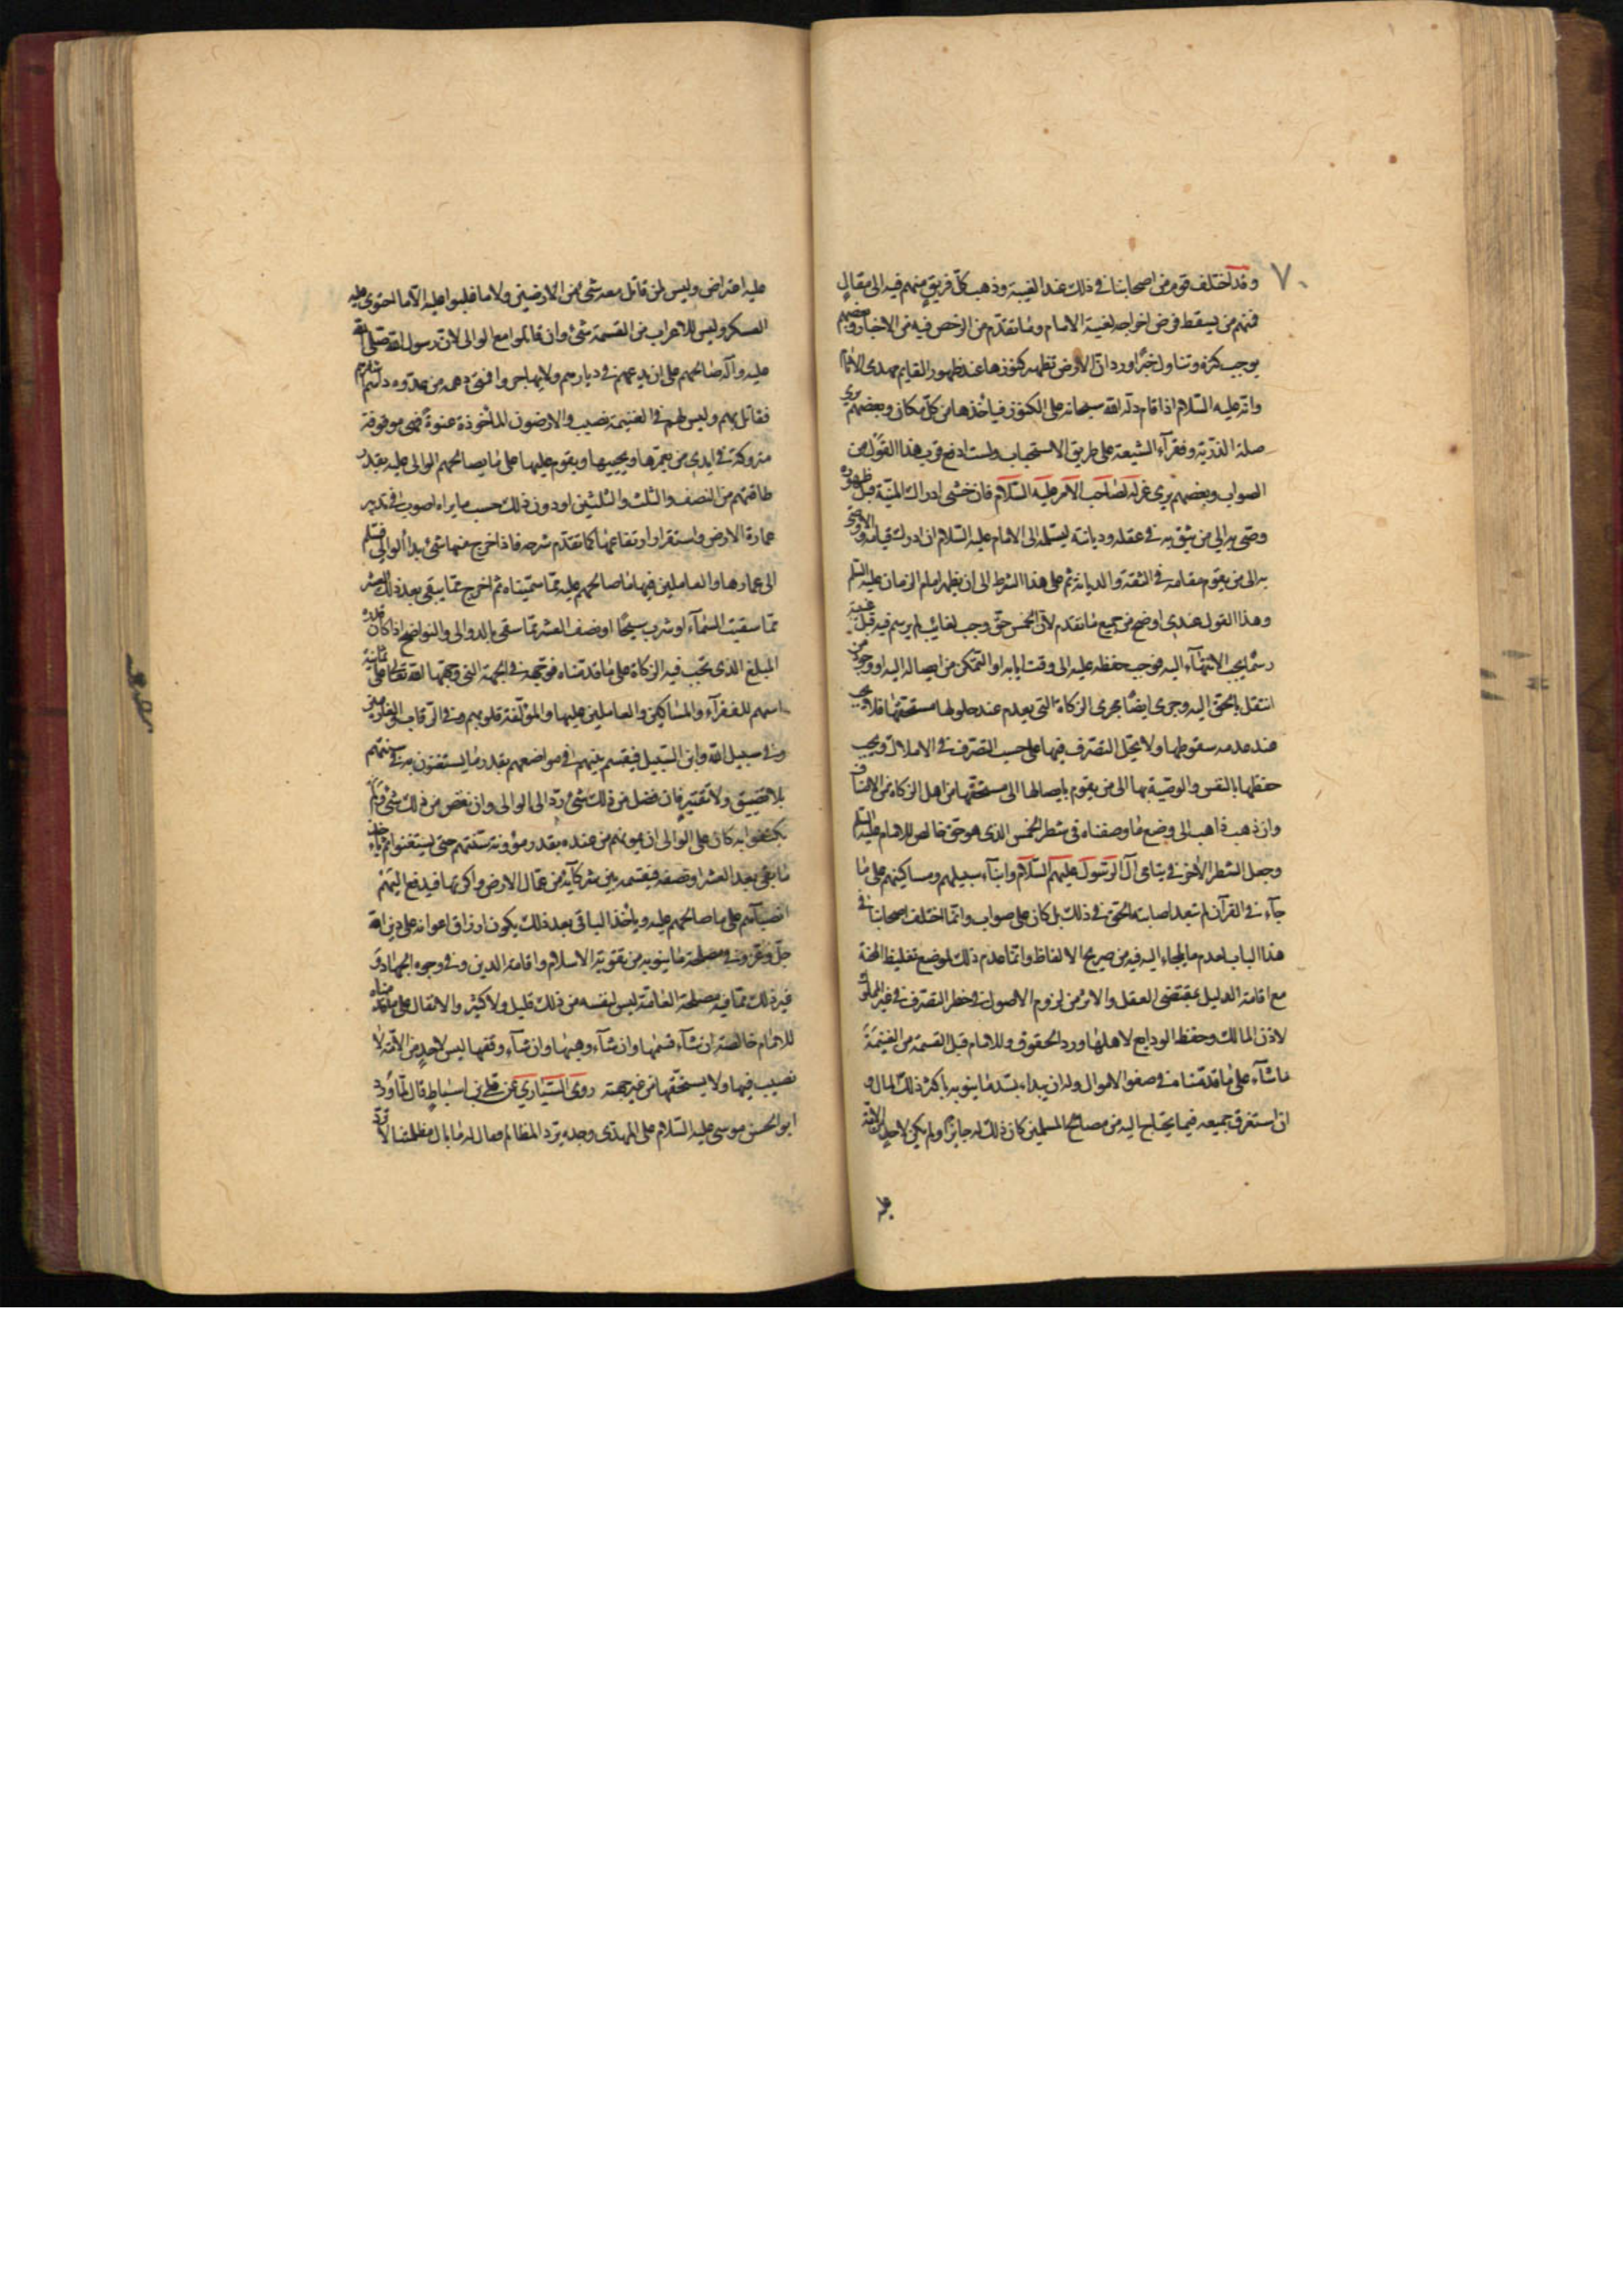 ٧٠
وقد اختلف قوم من اصحابنا في ذلك عند الغيبة وذهب كل فريق منهم فيه الى مقال
فمنهم من يسقط فرض اخراجه لغيبة الامام وما تقدم من الرخص فيه من الاخبار وبعضهم
يوجب كنزه وتناول خبرا ورد ان الارض تظهر كنوزها عند ظهور القايم مهدى الانام
وانه عليه السلام اذا قام دله الله سبحانه على الكنوز فيأخذها من كل مكان وبعضهم يرى
صلة الذرية وفقرآء الشيعة على طريق الاستحباب ولست ادفع قرب هذا القول من
الصواب وبعضهم يرى عزله لصاحب الامر عليه السلام فان خشى ادراك المنية قبل ظهوره
وصى به الى من يثق به في عقله وديانته ليسلمه الى الامام عليه السلام ان ادرك قيامه والا وصى
به الى من يقوم مقامه في الثقة والديانة ثم على هذا الشرط الى ان يظهر امام الزمان عليه السلم
وهذا القول عندى اوضح من جميع ما تقدم لان الخمس حق وجب لغائب لم يرسم فيه قبل غيبته
رسم يجب الانتهآء اليه فوجب حفظه عليه الى وقت ايابه او التمكن من ايصاله اليه او وجود من
انتقل بالحق اليه وجرى ايضا مجرى الزكاة التى يعدم عند حلولها مستحقها فلا يجب
عند عدمه سقوطها ولا يحل التصرف فيها على حسب التصرف في الاملاك ويجب
حفظها بالنفس والوصية بها الى من يقوم بايصالها الى مستحقها من اهل الزكاة من الاصناف
وان ذهب ذاهب الى وضع ما وصفناه في شطر الخمس الذى هو حق خالص للامام عليه السلم
وجعل الشطر الاخر في يتامى آل الرسول عليهم السلام وابنآء سبيلهم ومساكينهم على ما
جآء في القرآن لم تبعد اصابته الحق في ذلك بل كان على صواب وانما اختلف اصحابنا في
هذا الباب لعدم ما يلجاء اليه فيه من صريح الالفاظ وانما عدم ذلك لموضع تغليظ المحنة
مع اقامة الدليل بمقتضى العقل والاثر من لزوم الاصول في خطر التصرف في غير المملوك
لاذن المالك وحفظ الودايع لاهلها ورد الحقوق وللامام قبل القسمة من الغنيمة
ما شآء على ما قدمنا في صفو الاموال وله ان يبداء بسد ما ينوبه باكثر ذلك المال و
ان استغرق جميعه فيما يحتاج اليه من مصالح المسلمين كان ذلك له جايزا ولم يكن لاحد من الامة
عليه اعتراض وليس لمن قاتل معه شئ من الارضين ولا ما غلبوا عليه الا ما احتوى عليه
العسكر وليس للاعراب من القسمة شئ وان قاتلوا مع الوالى لان رسول الله صلى الله
عليه وآله صالحهم على ان يدعهم في ديارهم ولا يهاجروا فمتى دهمه من عدوه دهم استنفرهم
فقاتل بهم وليس لهم في الغنيمة نصيب والارضون المأخوذة عنوة فهى موقوفة
متروكة في ايدى من يعمرها ويحييها ويقوم عليها على ما يصالحهم الوالى عليه بقدر
طاقتهم من النصف والثلث والثلثين او دون ذلك حسب ما يراه اصوب في تدبير
عمارة الارض واستقرار ارتفاعها كما تقدم شرحه فاذا اخرج منها شئ بدأ الوالى فسلم
الى عمارها والعاملين فيها ما صالحهم عليه مما سميناه ثم اخرج مما يبقى بعد ذلك العشر
مما سقيت السمآء او شرب سيحا او نصف العشر مما سقى بالدوالى والنواضح اذا كان قدره
المبلغ الذى تجب فيه الزكاة على ما قدمناه فوجهه في الجهة التى وجهها الله تعالى على ثمانية
اسهم للفقرآء والمساكين والعاملين عليها والمؤلفة قلوبهم وفي الرقاب والغارمين
وفي سبيل الله وابن السبيل فيقسم بينهم في مواضعهم بقدر ما يستغنون به في سنتهم
بلا تضييق ولا تقتير فان فضل من ذلك شئ رد الى الوالى وان نقص من ذلك شئ ولم
يكتفوا به كان على الوالى ان يمونهم من عنده بقدر مؤونة سنتهم حتى يستغنوا ثم يأخذ
ما بقى بعد العشر او نصفه فيقسمه بين شركآئه من عمال الارض واكرتها فيدفع اليهم
انصبآئهم على ما صالحهم عليه ويأخذ الباقى بعد ذلك يكون ارزاق اعوانه على دين الله
جل وعز وفي مصلحة ما ينوبه من تقوية الاسلام واقامة الدين وفي وجوه الجهاد و
غير ذلك مما فيه مصلحة العامة ليس لنفسه من ذلك قليل ولا كثير والانفال على ما قدمناه
للامام خالصة ان شآء قسمها وان شآء وهبها وان شآء وقفها ليس لاحد من الامة لا
نصيب فيها ولا يستحقها من غير جهته روى السيارى عن على بن اسباط قال لما ورد
ابو الحسن موسى عليه السلام على المهدى وجده يرد المظالم فقال له ما بال مظلمتنا لا ترد